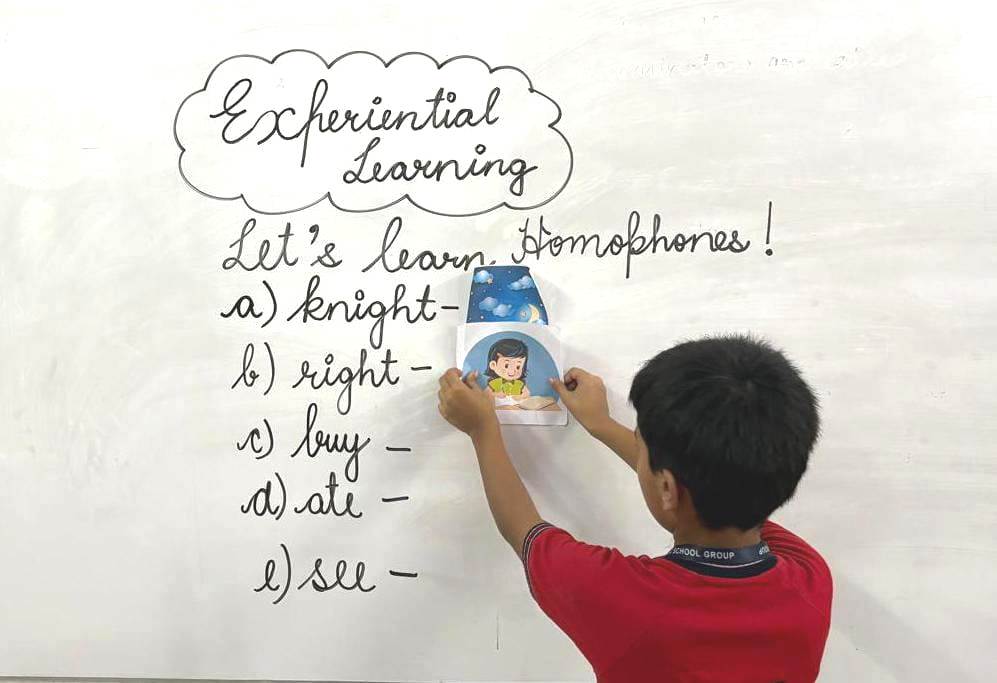 Experiential
Learning
Let's learn Homophones!
a) knight-
b) right -
c) buy -
d) ate -
e) see -
SCHOOL GROUP